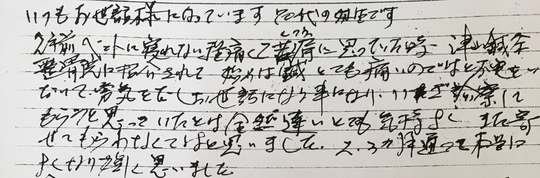 いつもお世話様になっています 70代の女性です
2年前 ベットに寝れない程痛くて 困っていた時 津山鍼灸
整骨院に紹介されて 始めは鍼とても痛いのではと不安を
だいて 勇気を出しお世話になる事になり いざ診察して
もらうと思っていたとは全然違いとても気持よく また寄
せてもらわなくてはと思いました。2、3ヶ月通って本当に
よくなり嬉しく思いました